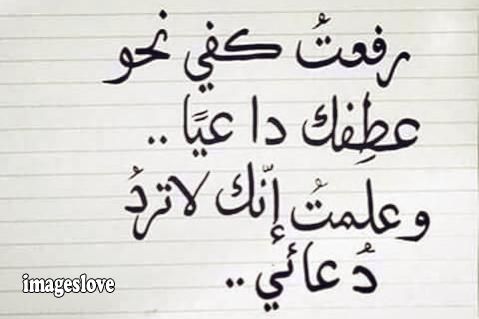 رفعتُ كفي نحو
عطِفك داعيًا ..
وعلمتُ إنّك لاتردُ
دُعائي ..
imageslove